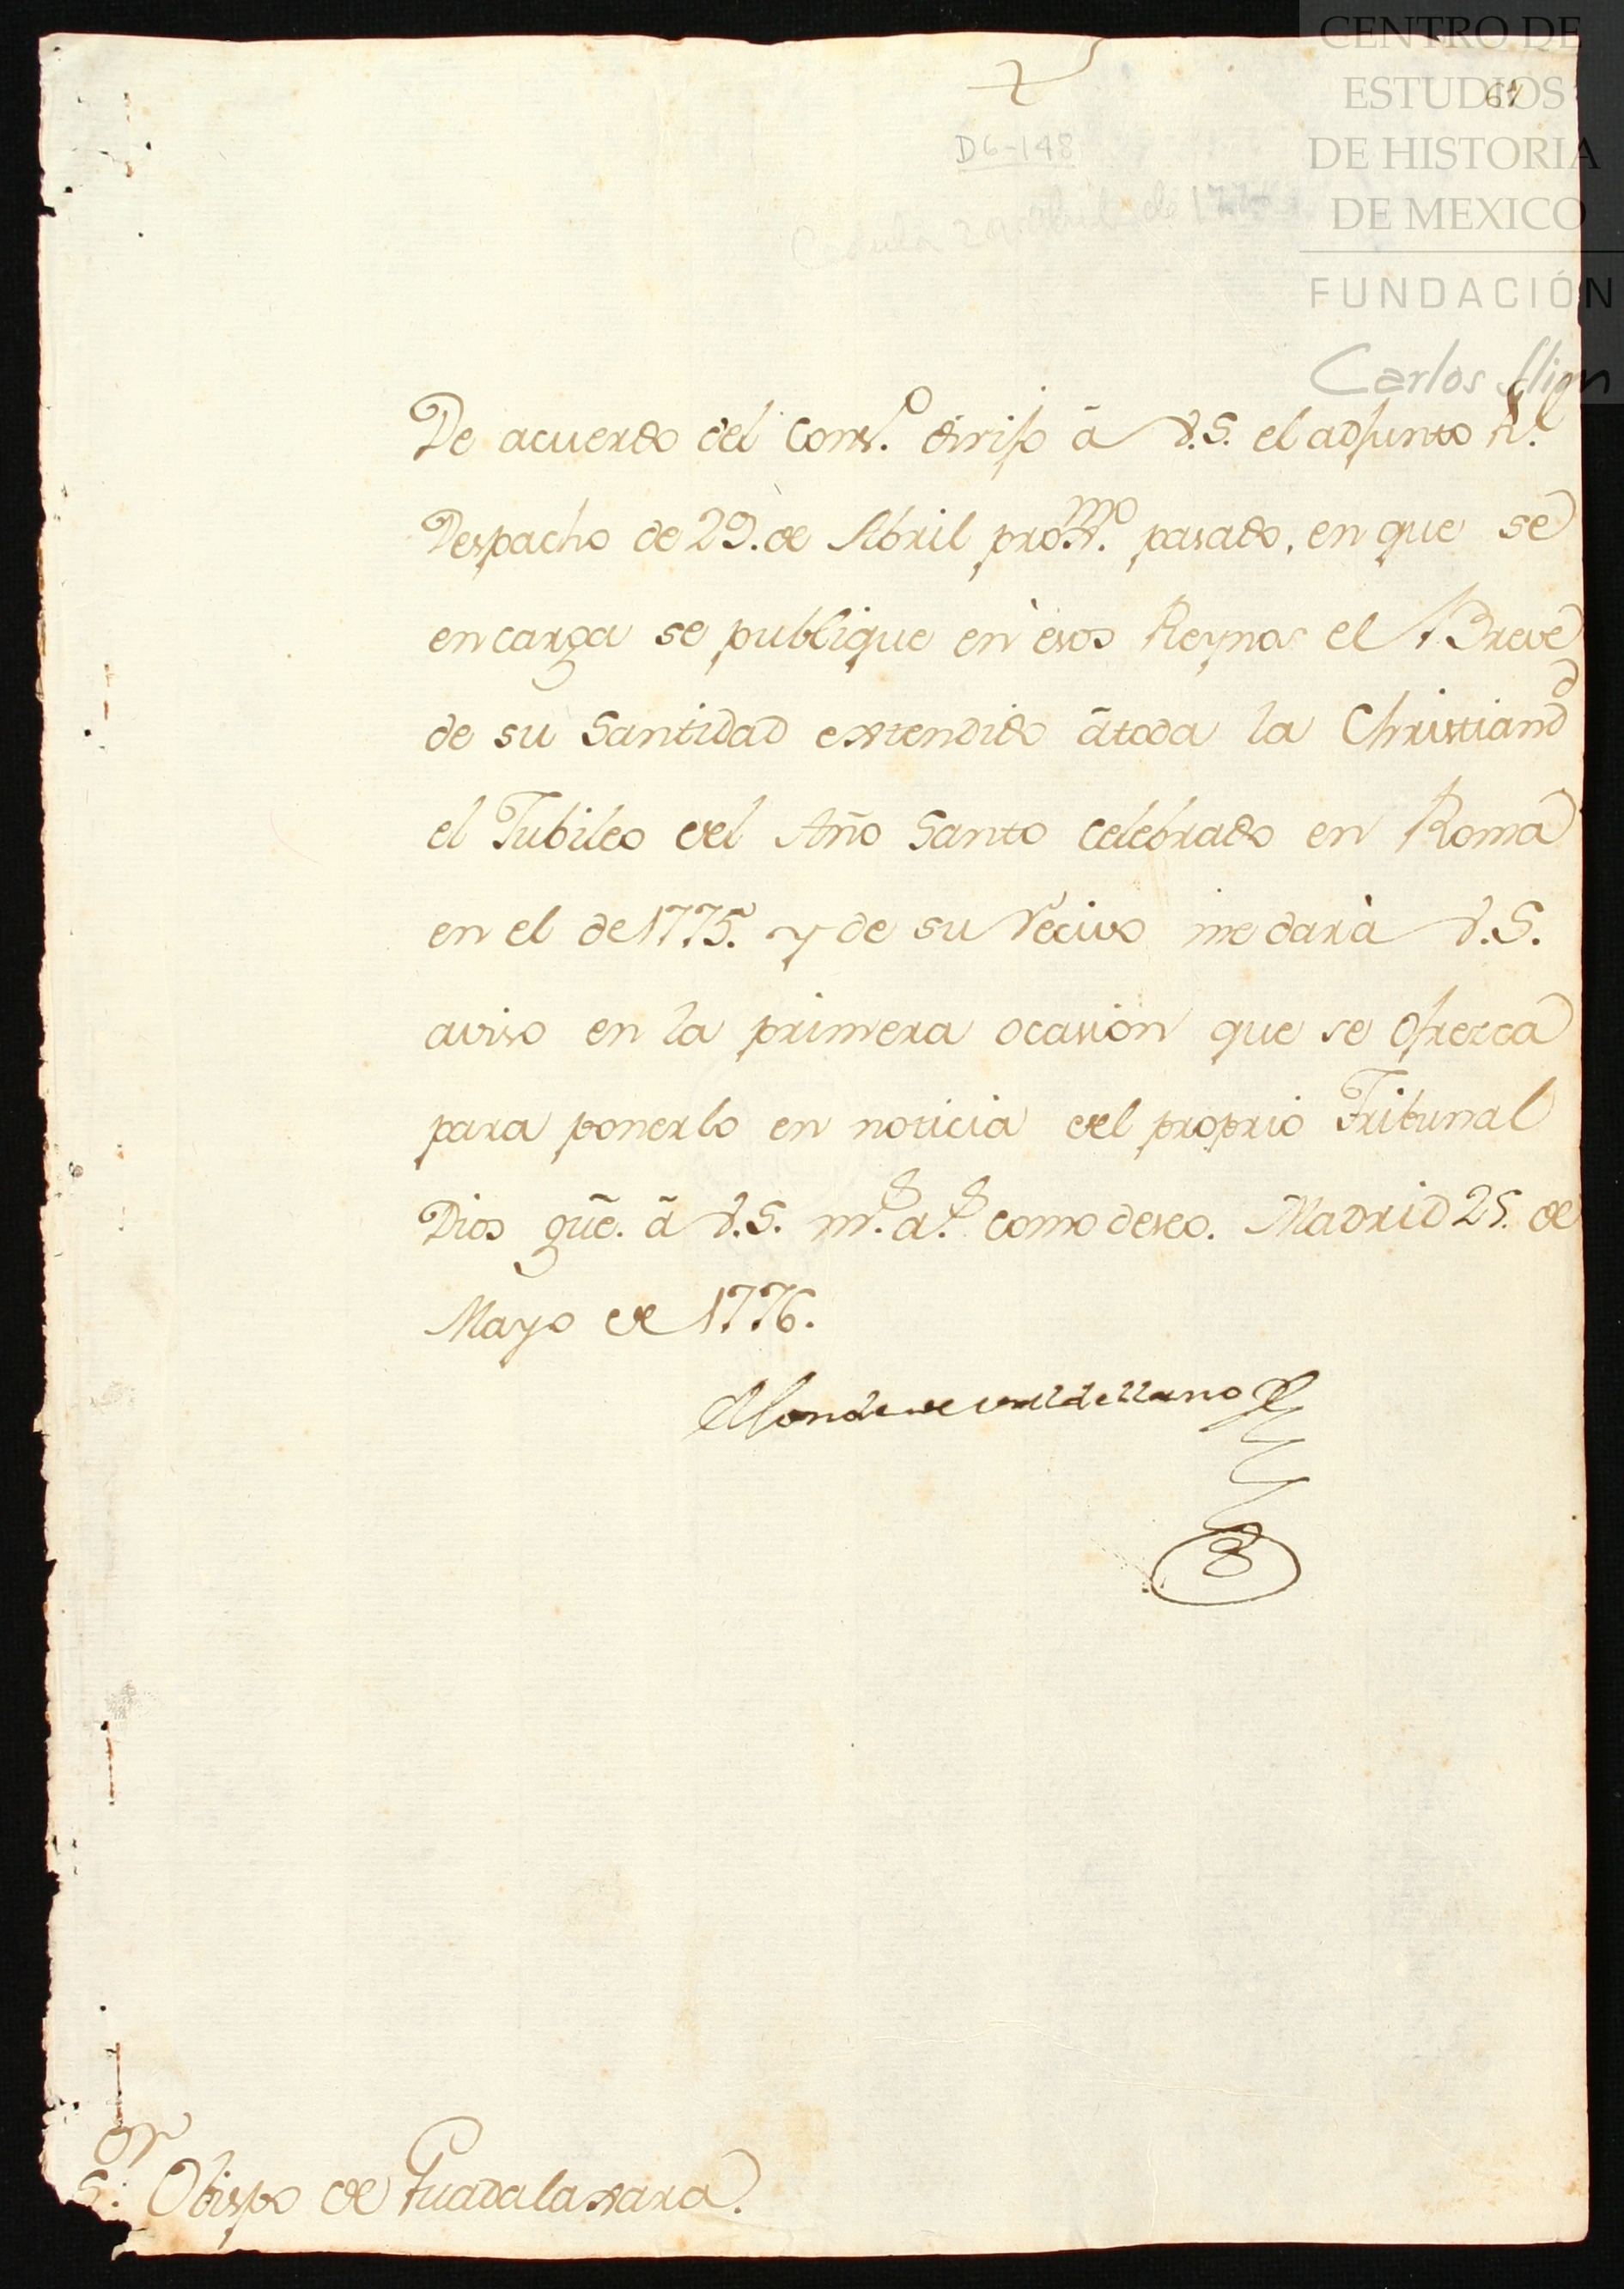 CENTRO DE
ESTUDIOS
DE HISTORIA
DE MEXICO
FUNDACIÓN
Carlos Slim
D6-148
De acuerdo del Cons.º dirijo â V.S. el adjunto R.l
Despacho de 29. de Abril pro.mo pasado, en que se
encarga se publique en esos Reynos el Breve
de su Santidad extendido â toda la Christiand.d
el Jubileo del Año Santo celebrado en Roma
en el de 1775. y de su recivo me darà V.S.
aviso en la primera ocasion que se ofrezca
para ponerlo en noticia del proprio Tribunal
Dios gûe. â V.S. m.s a.s como deseo. Madrid 25. de
Mayo de 1776.
El Conde de Valdellano
S.or Obispo de Guadalaxara.